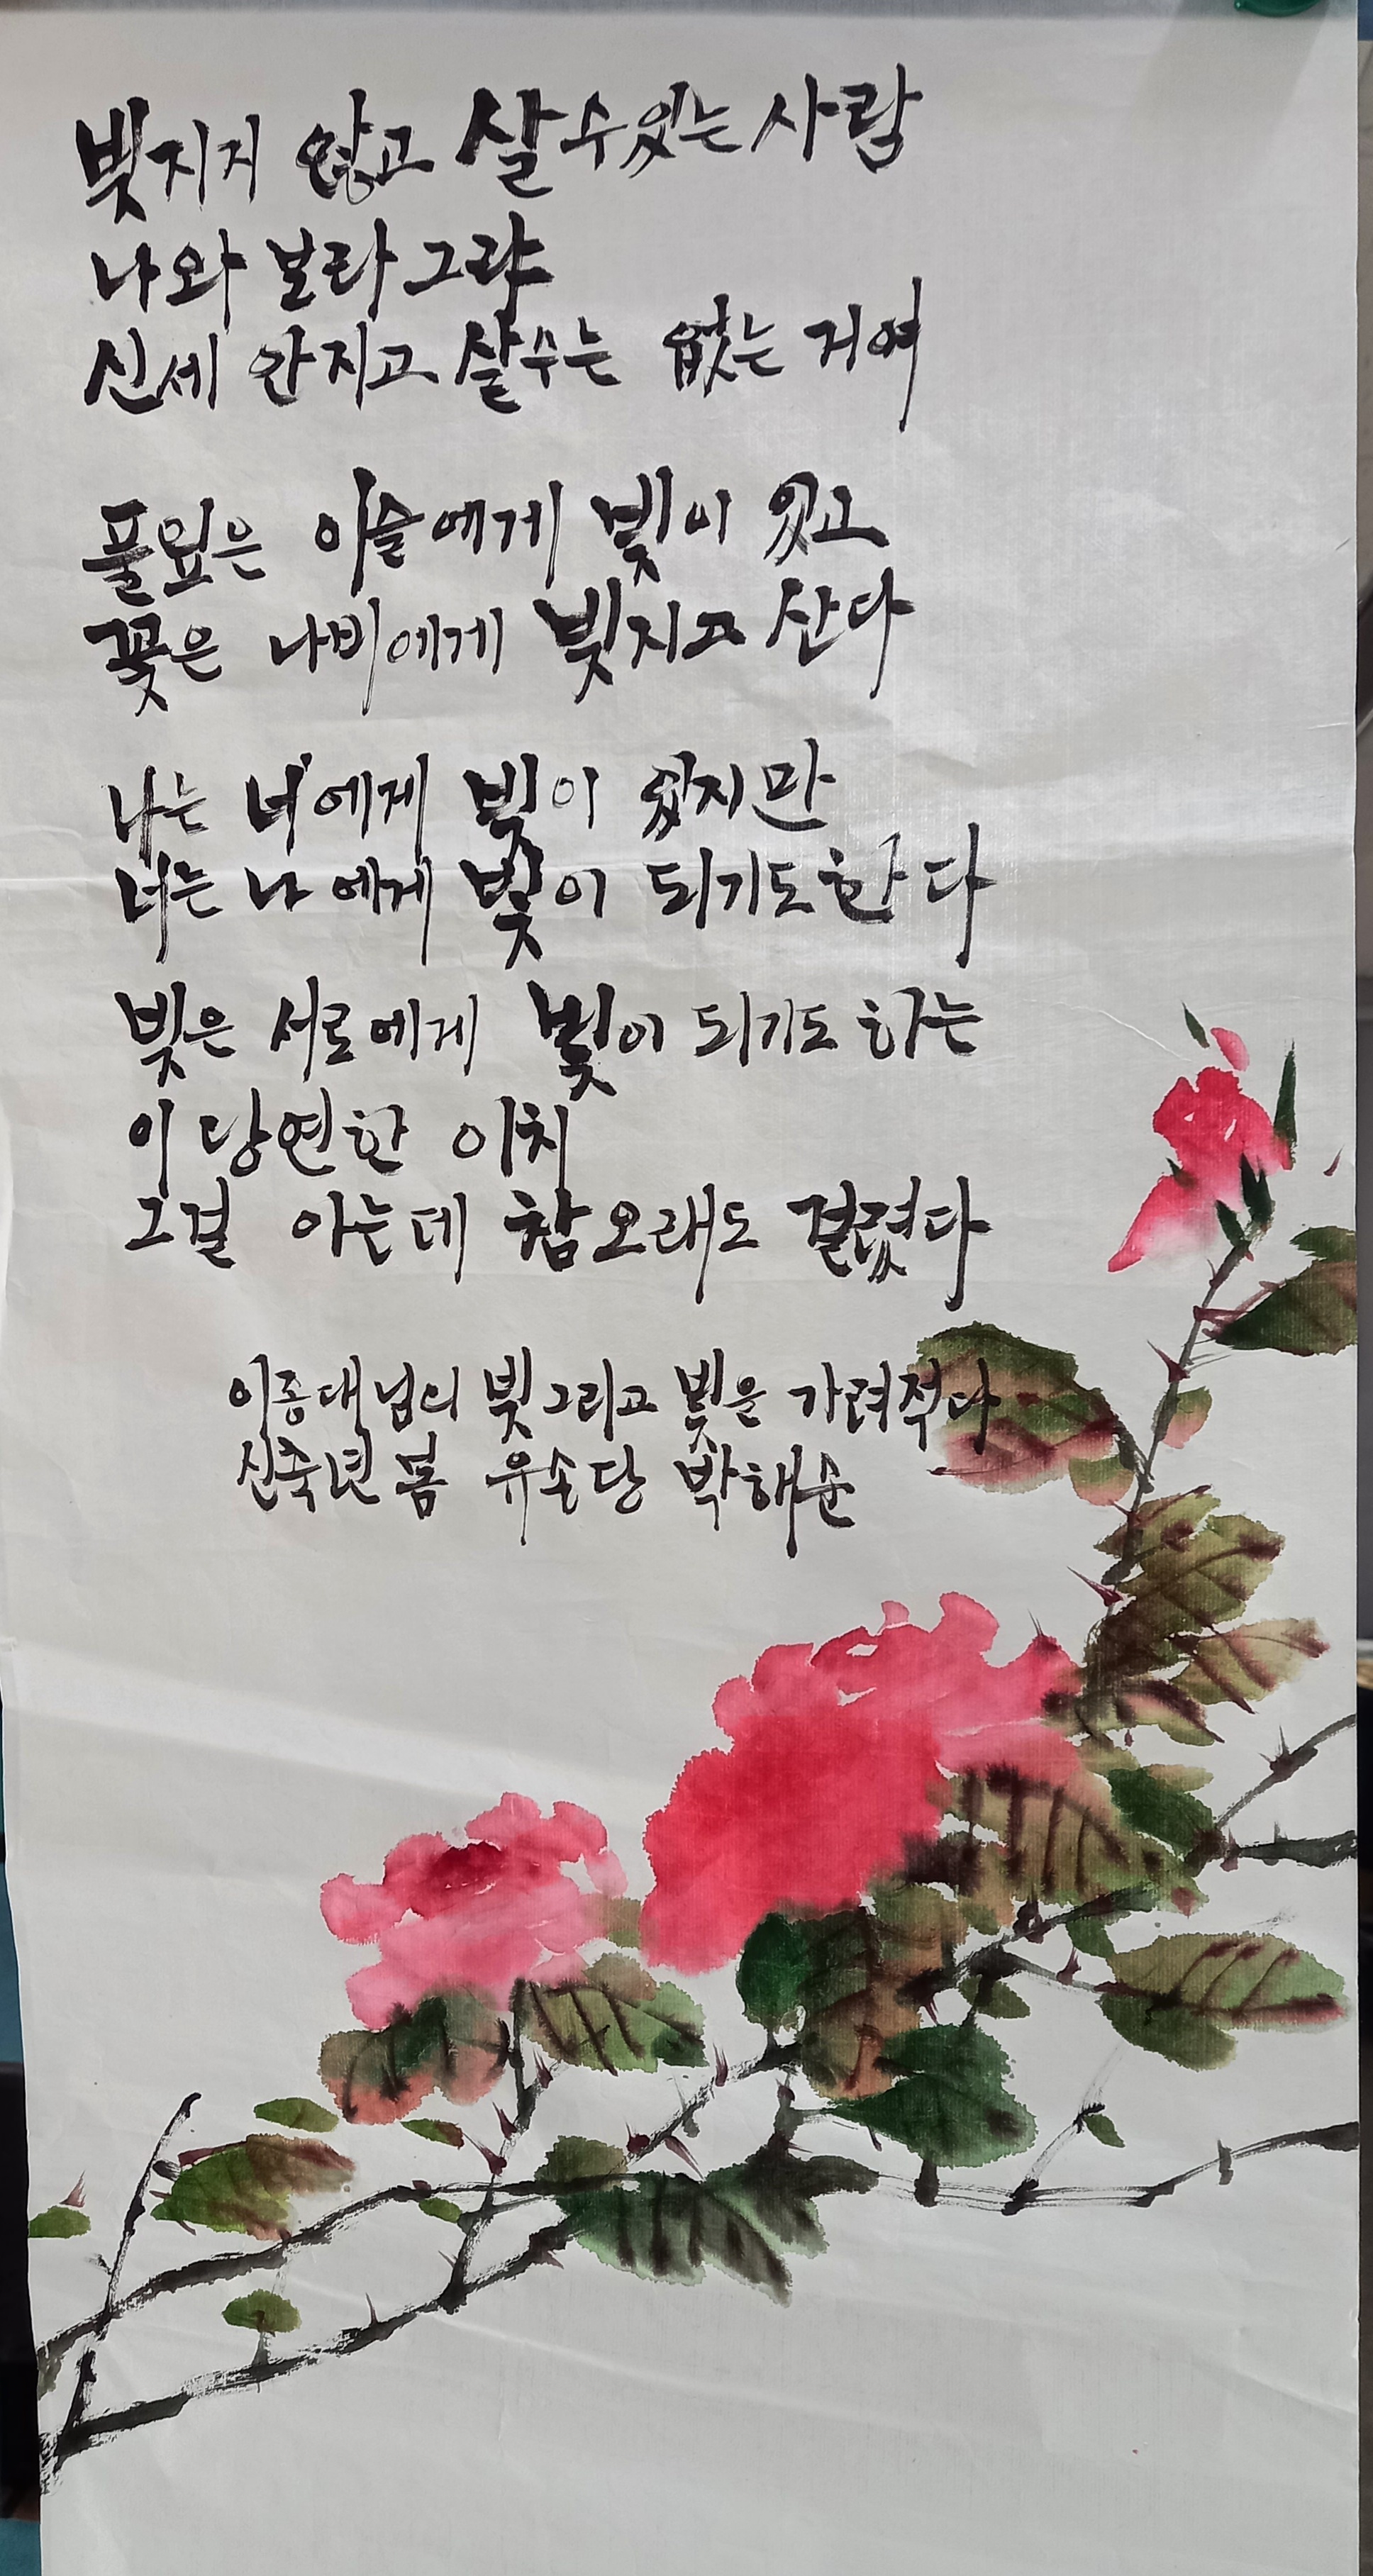 빚지지 않고 살수있는 사람
나와 보라 그랴
신세 안지고 살수는 없는 거여
풀잎은 이슬에게 빚이 있고
꽃은 나비에게 빚지고 산다
나는 너에게 빚이 있지만
너는 나에게 빛이 되기도한다
빚은 서로에게 빛이 되기도 하는
이 당연한 이치
그걸 아는데 참 오래도 걸렸다
이종대님의 빚 그리고 빛을 가려적다
신축년 봄 유송당 박해순